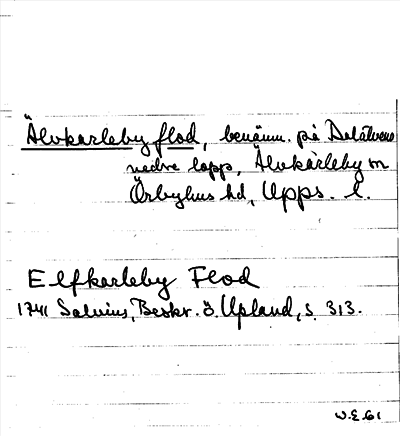 Älvkarleby flod, benämn. på Dalälvens
nedre lopp, Älvkarleby sn
Örbyhus hd, Upps. l.
Elfkarleby Flod
1741 Salvius, Beskr. ö. Upland, s. 313.
W.E. 61